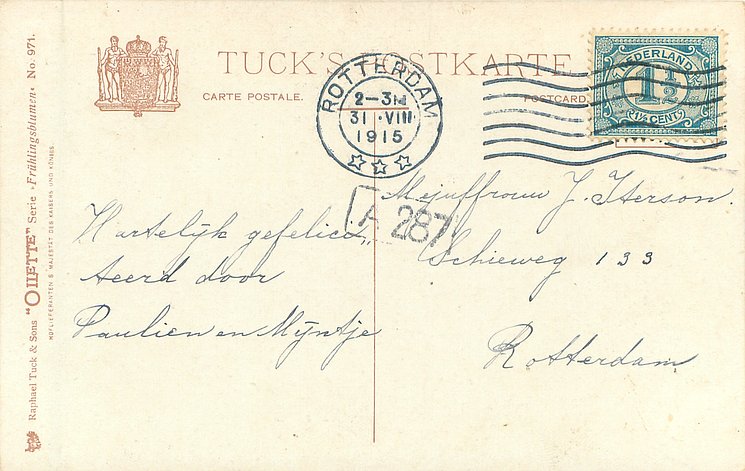 TUCK'S POSTKARTE
CARTE POSTALE.
POSTCARD.
ROTTERDAM
2-3N
31 VIII
1915
NEDERLAND
1 1/2
(1½ CENT)
A 287
Hartelijk gefelici
teerd door
Paulien en Mijntje
Mejuffrouw J. Iterson.
Schieweg 133
Rotterdam.
Raphael Tuck & Sons "OILETTE" Serie „Frühlingsblumen“ No. 971.
HOFLIEFERANTEN S. MAJESTÄT DES KAISERS UND KÖNIGS.